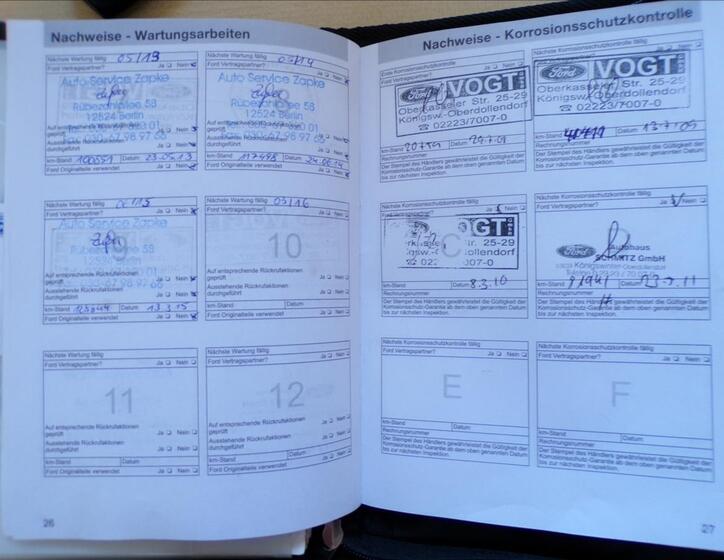 Nachweise - Wartungsarbeiten
Nächste Wartung fällig 05/13
Ford Vertragspartner? Ja Nein
Auto Service Zapke
Rübezahlallee 58
12524 Berlin
Auf entsprechende Rückrufaktionen
geprüft
Ausstehende Rückrufaktionen
durchgeführt
km-Stand 100659 Datum 23.05.13
Ford Originalteile verwendet Ja Nein
Nächste Wartung fällig 05/14
Ford Vertragspartner? Ja Nein
Auto Service Zapke
Rübezahlallee 58
12524 Berlin
Auf entsprechende Rückrufaktionen
geprüft
Ausstehende Rückrufaktionen
durchgeführt
km-Stand 117498 Datum
Ford Originalteile verwendet Ja Nein
Nächste Wartung fällig
Ford Vertragspartner? Ja Nein
Auto Service Zapke
Auf entsprechende Rückrufaktionen
geprüft
Ausstehende Rückrufaktionen
durchgeführt
km-Stand Datum
Ford Originalteile verwendet Ja Nein
Nächste Wartung fällig 03/16
Ford Vertragspartner? Ja Nein
10
Auf entsprechende Rückrufaktionen
geprüft Ja Nein
Ausstehende Rückrufaktionen
durchgeführt Ja Nein
km-Stand Datum
Ford Originalteile verwendet Ja Nein
Nächste Wartung fällig
Ford Vertragspartner? Ja Nein
11
Auf entsprechende Rückrufaktionen
geprüft Ja Nein
Ausstehende Rückrufaktionen
durchgeführt Ja Nein
km-Stand Datum
Ford Originalteile verwendet Ja Nein
Nächste Wartung fällig
Ford Vertragspartner? Ja Nein
12
Auf entsprechende Rückrufaktionen
geprüft Ja Nein
Ausstehende Rückrufaktionen
durchgeführt Ja Nein
km-Stand Datum
Ford Originalteile verwendet Ja Nein
26
Nachweise - Korrosionsschutzkontrolle
Erste Korrosionsschutzkontrolle
Ford Vertragspartner? Ja Nein
Ford VOGT
Oberkasseler Str. 25-29
Königsw.-Oberdollendorf
☎ 02223/7007-0
km-Stand Datum
Rechnungsnummer
Der Stempel des Händlers gewährleistet die Gültigkeit der
Korrosions-Garantie ab dem oben genannten Datum
bis zur nächsten Inspektion.
Nächste Korrosionsschutzkontrolle fällig
Ford Vertragspartner? Ja Nein
Ford VOGT
Oberkasseler Str. 25-29
Königsw.-Oberdollendorf
☎ 02223/7007-0
km-Stand Datum 13.7.09
Rechnungsnummer
Der Stempel des Händlers gewährleistet die Gültigkeit der
Korrosions-Garantie ab dem oben genannten Datum
bis zur nächsten Inspektion.
Nächste Korrosionsschutzkontrolle fällig
Ford Vertragspartner? Ja Nein
VOGT
C
Str. 25-29
km-Stand Datum 8.3.10
Rechnungsnummer
Der Stempel des Händlers gewährleistet die Gültigkeit der
Korrosions-Garantie ab dem oben genannten Datum
bis zur nächsten Inspektion.
Nächste Korrosionsschutzkontrolle fällig
Ford Vertragspartner? Ja Nein
Ford Autohaus
SCHMITZ GmbH
km-Stand Datum
Rechnungsnummer
Der Stempel des Händlers gewährleistet die Gültigkeit der
Korrosions-Garantie ab dem oben genannten Datum
bis zur nächsten Inspektion.
Nächste Korrosionsschutzkontrolle fällig
Ford Vertragspartner? Ja Nein
E
km-Stand Datum
Rechnungsnummer
Der Stempel des Händlers gewährleistet die Gültigkeit der
Korrosions-Garantie ab dem oben genannten Datum
bis zur nächsten Inspektion.
Nächste Korrosionsschutzkontrolle fällig
Ford Vertragspartner? Ja Nein
F
km-Stand Datum
Rechnungsnummer
Der Stempel des Händlers gewährleistet die Gültigkeit der
Korrosions-Garantie ab dem oben genannten Datum
bis zur nächsten Inspektion.
27